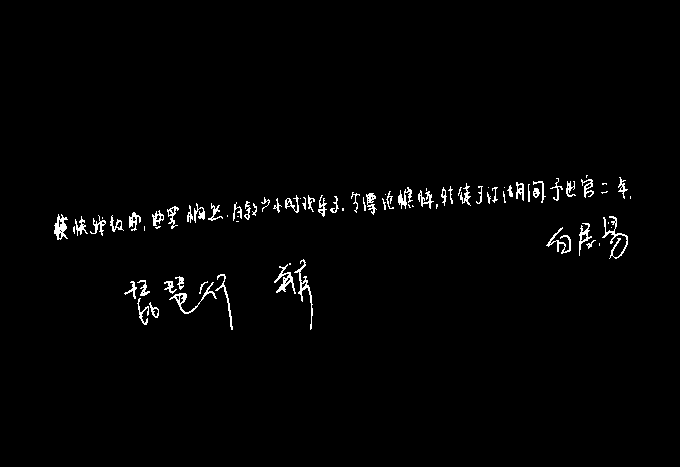 使快弹数曲,曲罢悯然.自叙少小时欢乐事.今漂沦憔悴,转徙于江湖间予出官二年,
白居易
琵琶行